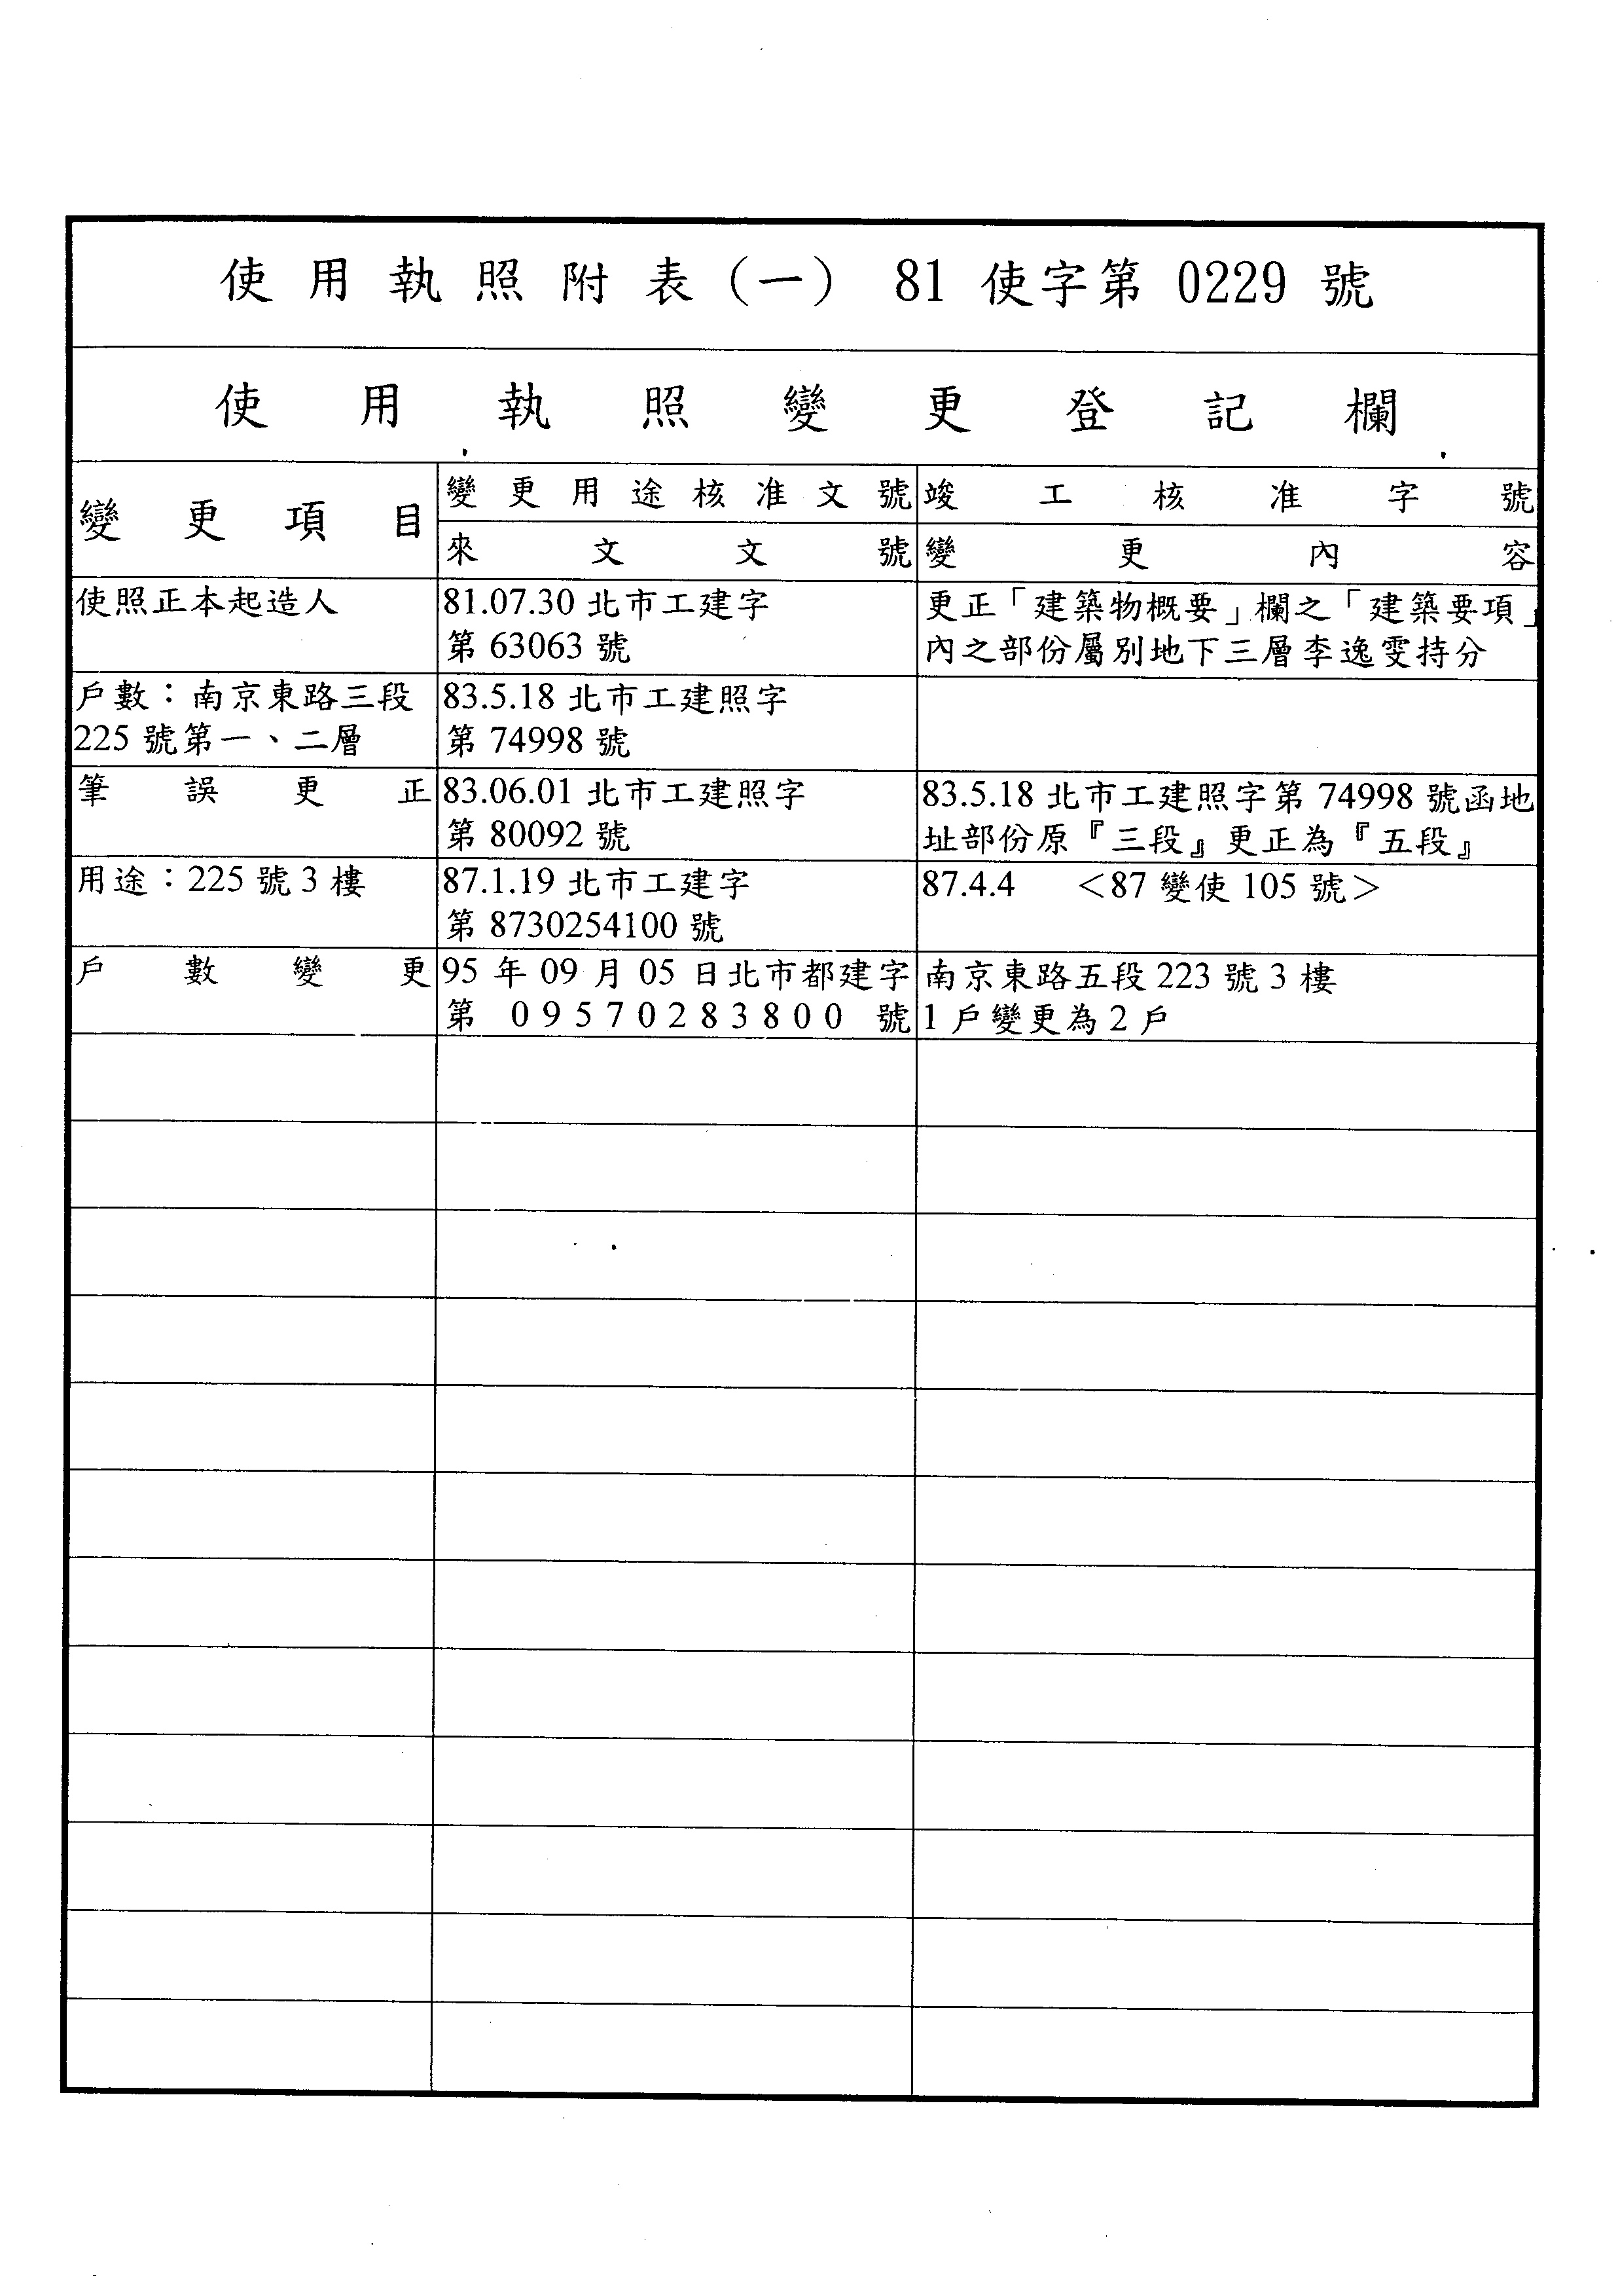 使用執照附表(一) 81 使字第 0229 號
使用執照變更登記欄
變更項目
變更用途核准文號
竣工核准字號
來文文號
變更內容
使照正本起造人
81.07.30 北市工建字
第 63063 號
更正「建築物概要」欄之「建築要項」
內之部份屬別地下三層李逸雯持分
戶數：南京東路三段
225 號第一、二層
83.5.18 北市工建照字
第 74998 號
筆誤更正
83.06.01 北市工建照字
第 80092 號
83.5.18 北市工建照字第 74998 號函地
址部份原『三段』更正為『五段』
用途：225 號 3 樓
87.1.19 北市工建字
第 8730254100 號
87.4.4 <87 變使 105 號>
戶數變更
95 年 09 月 05 日北市都建字
第 09570283800 號
南京東路五段 223 號 3 樓
1 戶變更為 2 戶